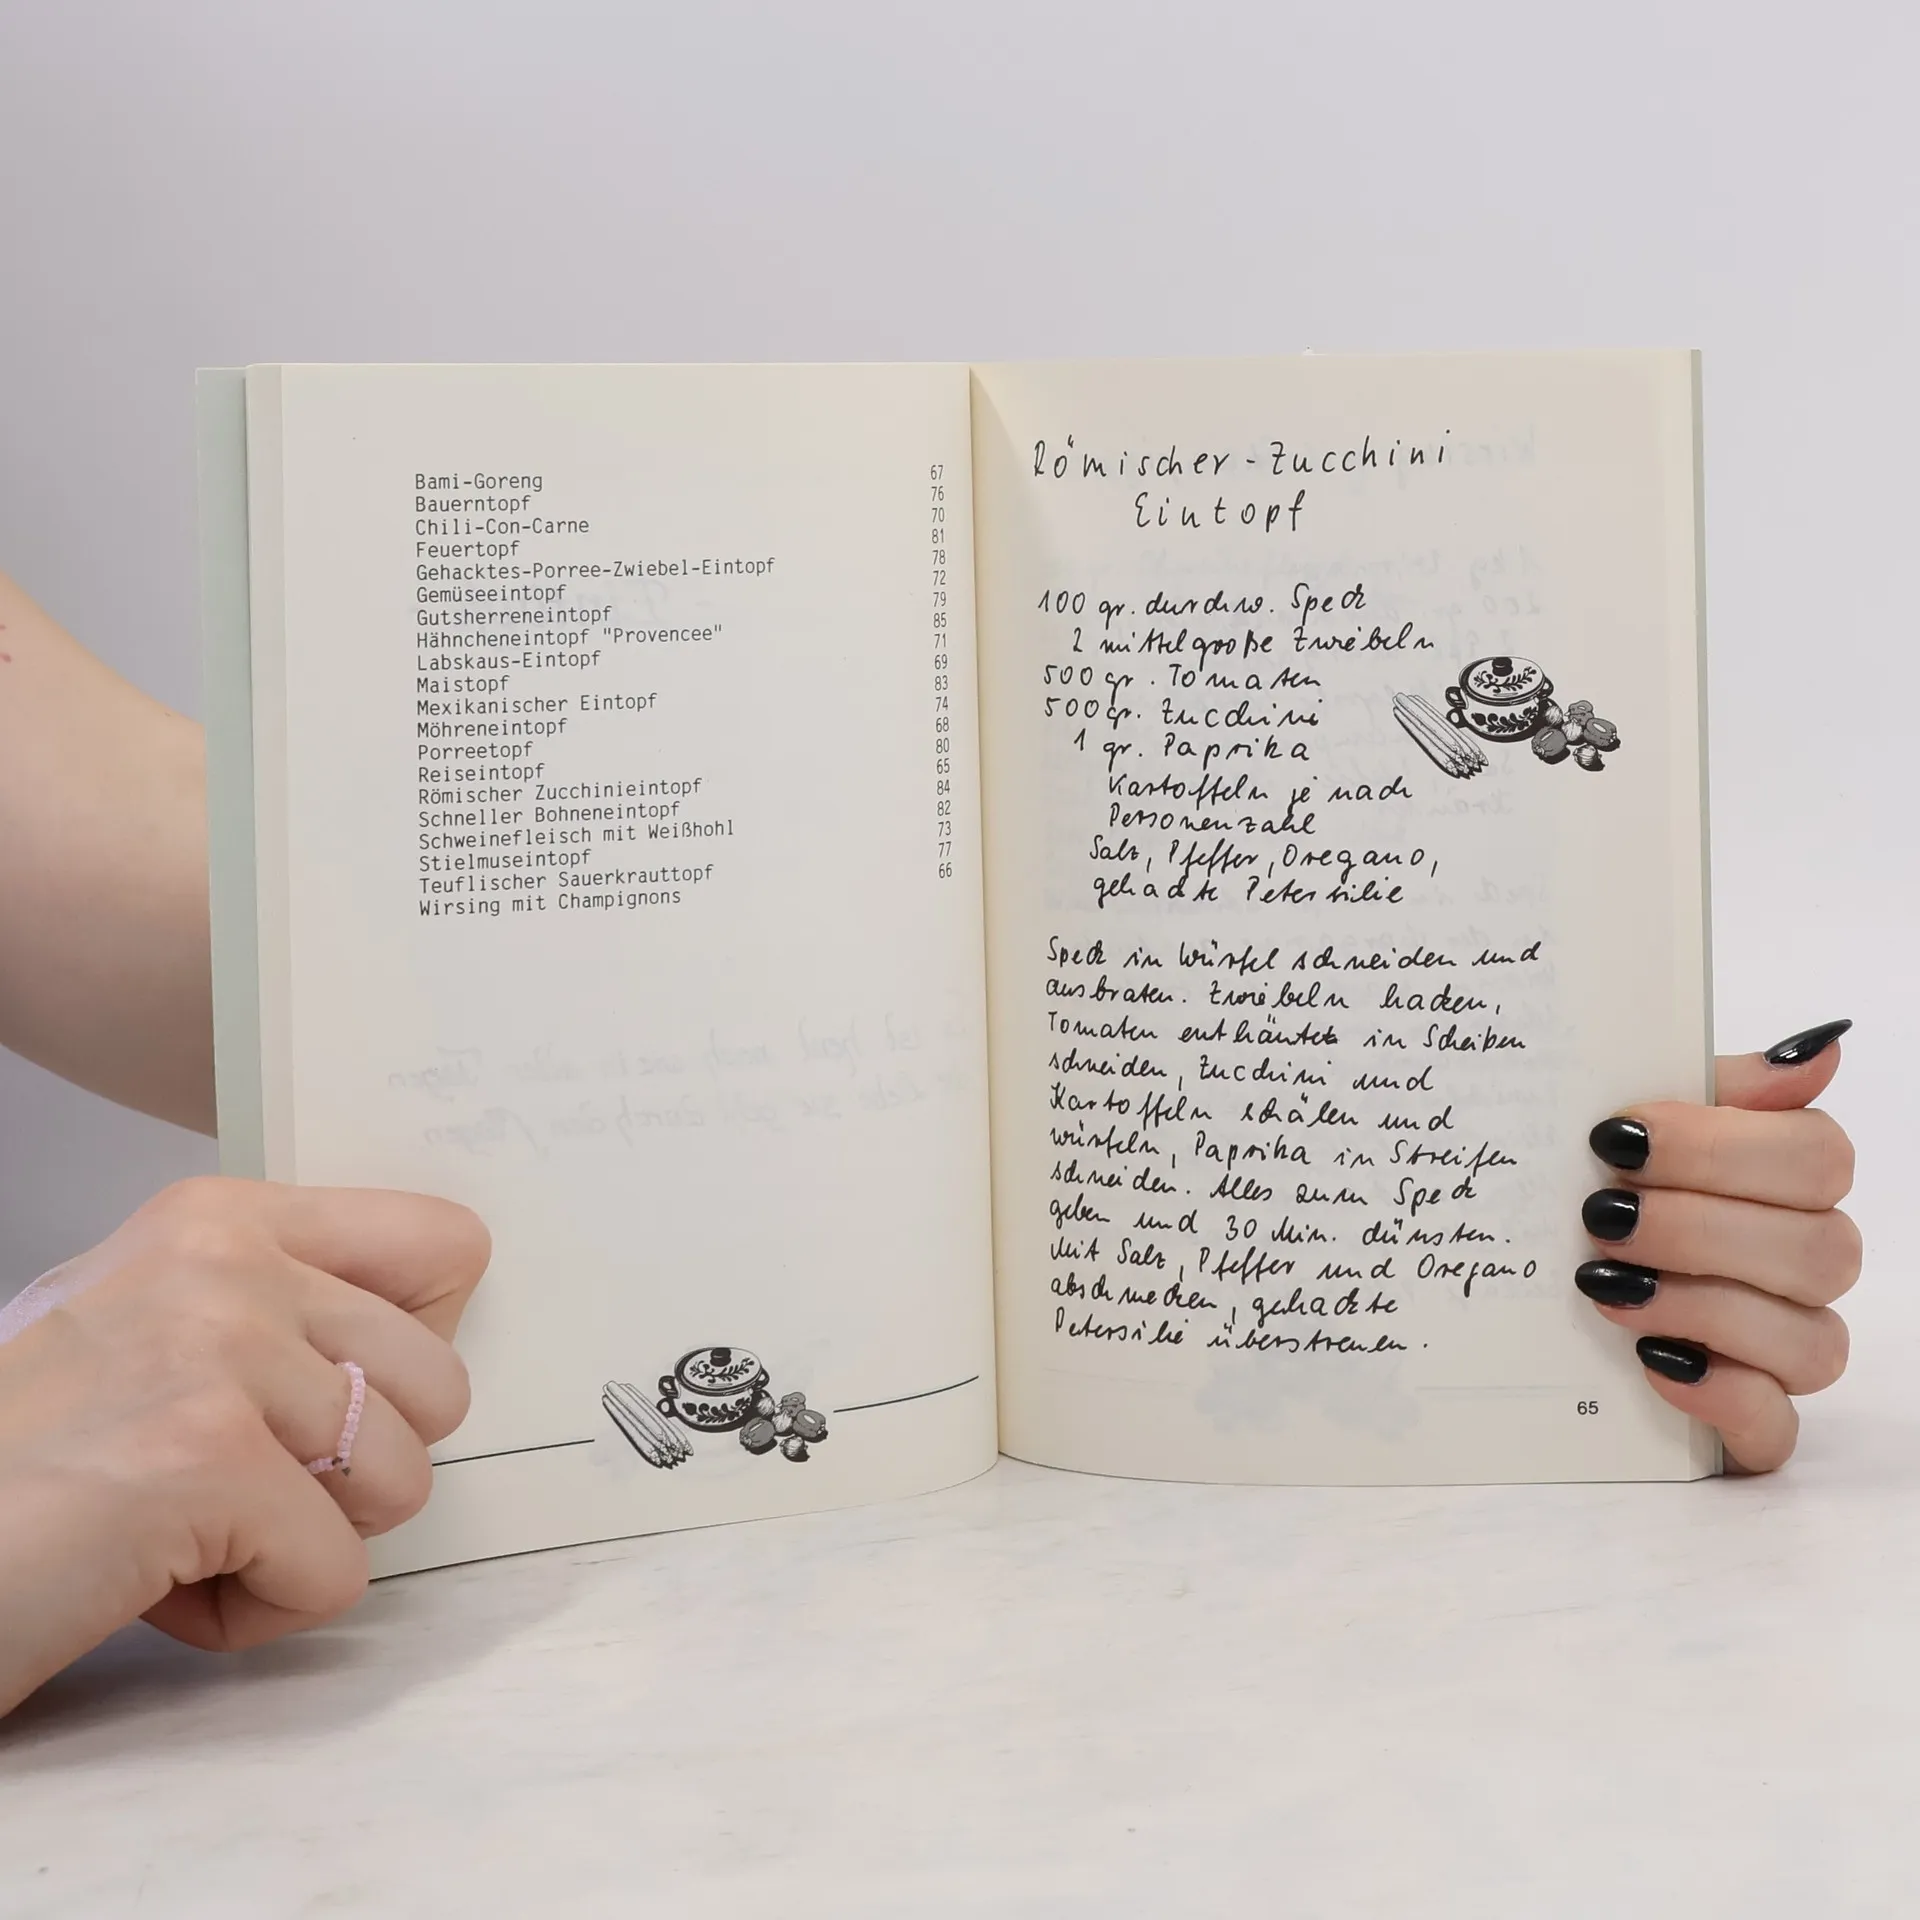 Bami-Goreng 67
Bauerntopf 76
Chili-Con-Carne 70
Feuertopf 81
Gehacktes-Porree-Zwiebel-Eintopf 78
Gemüseeintopf 72
Gutsherreneintopf 79
Hähncheneintopf "Provencee" 85
Labskaus-Eintopf 71
Maistopf 69
Mexikanischer Eintopf 83
Möhreneintopf 74
Porreetopf 68
Reiseintopf 80
Römischer Zucchinieintopf 65
Schneller Bohneneintopf 84
Schweinefleisch mit Weißhohl 82
Stielmuseintopf 73
Teuflischer Sauerkrauttopf 77
Wirsing mit Champignons 66
Römischer-Zucchini
Eintopf
100 gr. durchw. Speck
2 mittelgroße Zwiebeln
500 gr. Tomaten
500 gr. Zucchini
1 gr. Paprika
Kartoffeln je nach
Personenzahl
Salz, Pfeffer, Oregano,
gehackte Petersilie
Speck in Würfel schneiden und
ausbraten. Zwiebeln hacken,
Tomaten enthäutet in Scheiben
schneiden, Zucchini und
Kartoffeln schälen und
würfeln, Paprika in Streifen
schneiden. Alles zum Speck
geben und 30 Min. dünsten.
Mit Salz, Pfeffer und Oregano
abschmecken, gehackte
Petersilie überstreuen.
65